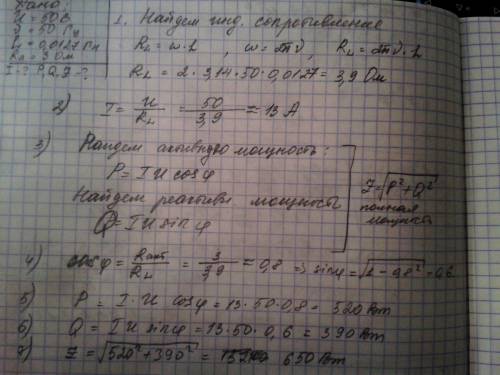 Дано:
U = 50 В
ν = 50 Гц
L = 0,0127 Гн
Rа = 3 Ом
I-? P, Q, Z-?
1. Найдем инд. сопротивление
R_L = ω·L , ω = 2πν , R_L = 2πν·L
R_L = 2·3,14·50·0,0127 = 3,9 Ом
2) I = U/R_L = 50/3,9 = 13 А
3) Найдем активную мощность:
P = IU cos φ
Найдем реактивн мощность
Q = IU sin φ
Z = √(P² + Q²)
полная
мощность
4) cos φ = Rакт/R_L = 3/3,9 = 0,8 => sin φ = √(1 - 0,8²) = 0,6
5) P = I·U cos φ = 13·50·0,8 = 520 Вт
6) Q = IU sin φ = 13·50·0,6 = 390 Вт
7) Z = √(520² + 390²) = 650 Вт